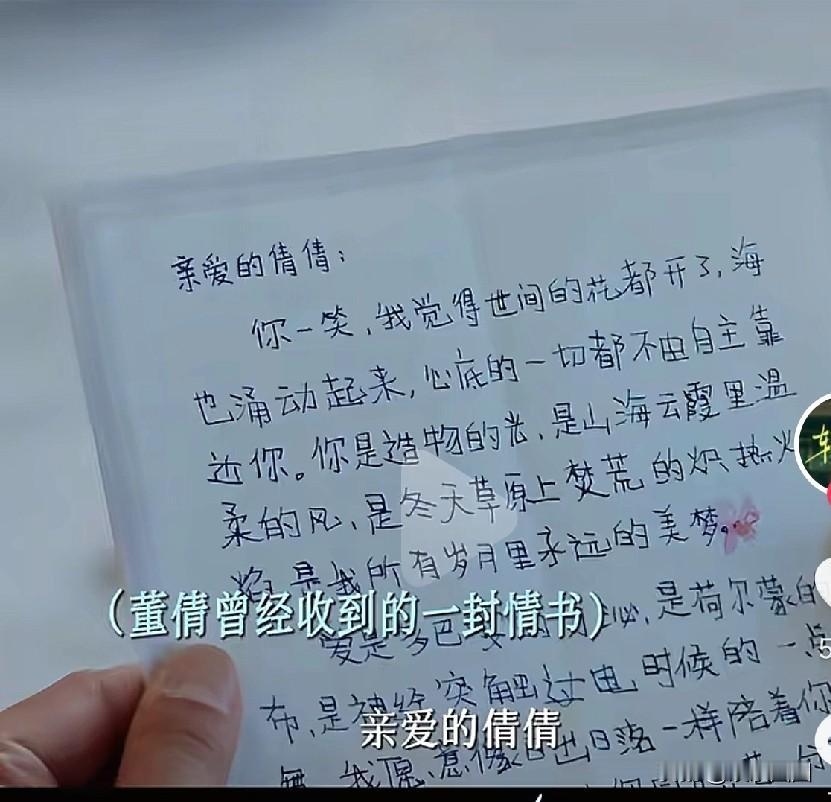 亲爱的倩倩：
你一笑，我觉得世间的花都开了，海
也涌动起来，心底的一切都不由自主靠
近你。你是造物的光，是山海云霞里温
柔的风，是冬天草原上焚荒的炽热火
是我所有岁月里永远的美梦。
（董倩曾经收到的一封情书）
爱是多巴 是荷尔蒙的
布，是神经突触过电时候的一点
我愿意像日出日落一样陪着你
亲爱的倩倩
车
5